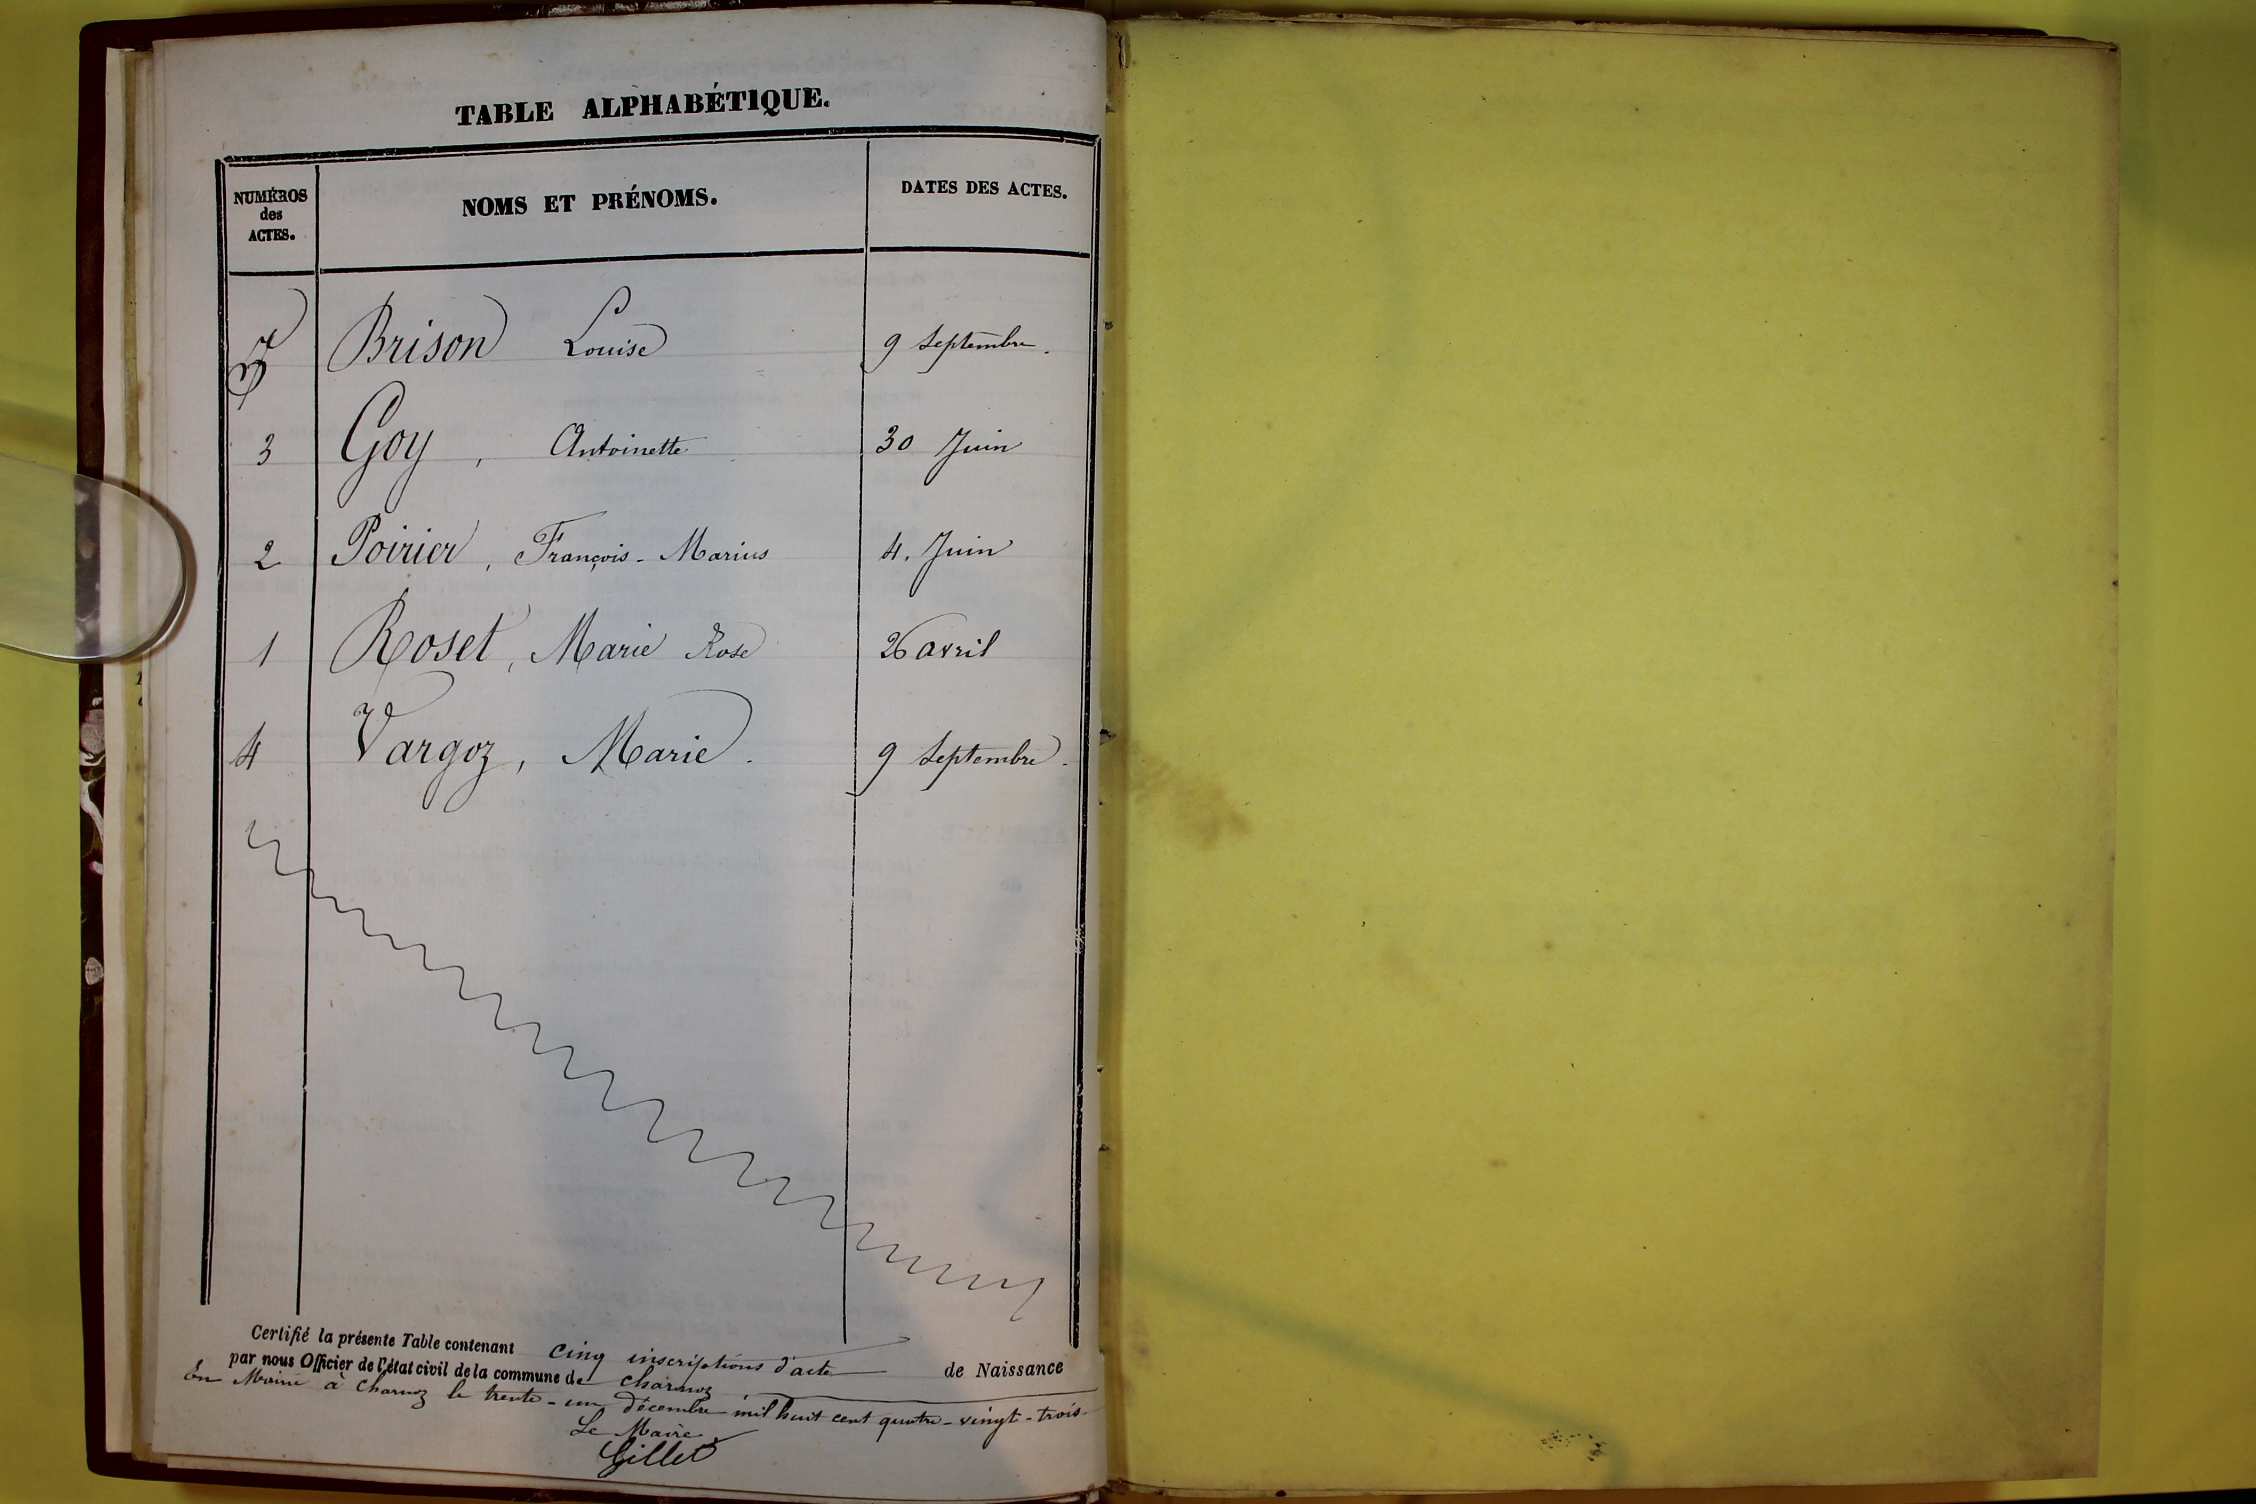 TABLE ALPHABÉTIQUE.
NUMÉROS des ACTES. NOMS ET PRÉNOMS. DATES DES ACTES.
5 Brison Louise 9 Septembre.
3 Goy, Antoinette 30 Juin
2 Poirier, François-Marius 4. Juin
1 Roset, Marie Rose 26 avril
4 Vargoz, Marie. 9 Septembre.
Certifié la présente Table contenant cinq inscriptions d'acte de Naissance
par nous Officier de l'état civil de la commune de Charnoz
En Mairie à Charnoz le trente-un décembre mil huit cent quatre-vingt-trois.
Le Maire
Gillet